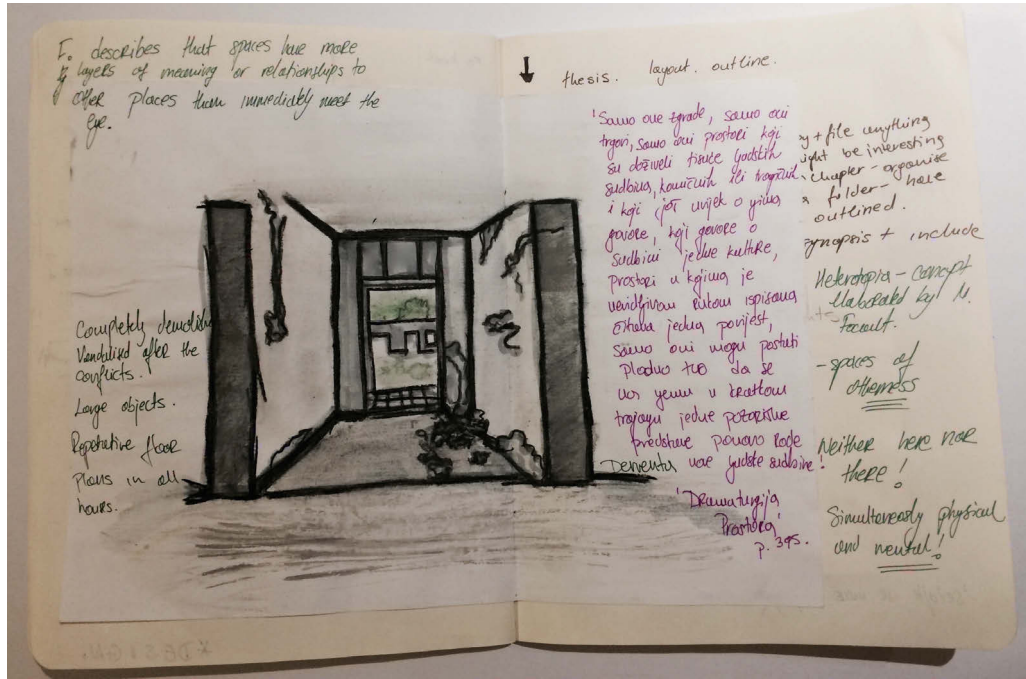 F. describes that spaces have more
layers of meaning or relationships to
other places than immediately meet the
eye.
Completely demolish
Vandalised after the
conflicts.
Large objects.
Repetative floor
plans in all
hours.
thesis. layout. outline.
'Samo one zgrade, samo oni
trgovi, samo oni prostori koji
su doživeli tisuće ljudskih
sudbina, komičnih ili tragičnih
i koji još uvijek o njima
govore, koji govore o
sudbini jedne kulture,
prostori u kojima je
nevidljivom rukom ispisana
jedna povijest,
samo oni mogu postati
plodno tlo da se
na njemu u kratkom
trajanju jedne pozorišne
predstave ponovo rode
Derventa nove ljudske sudbine!
'Dramaturgija
Prostora'
p. 395.
y + file anything
ight be interesting
chapter - organise
folder - have
outlined.
synopsis + include
Heterotopia - concept
elaborated by M.
Focoult.
- spaces of
otherness
Neither here nor
there!
Simultaneously physical
and neutral!
X-DESIGN.